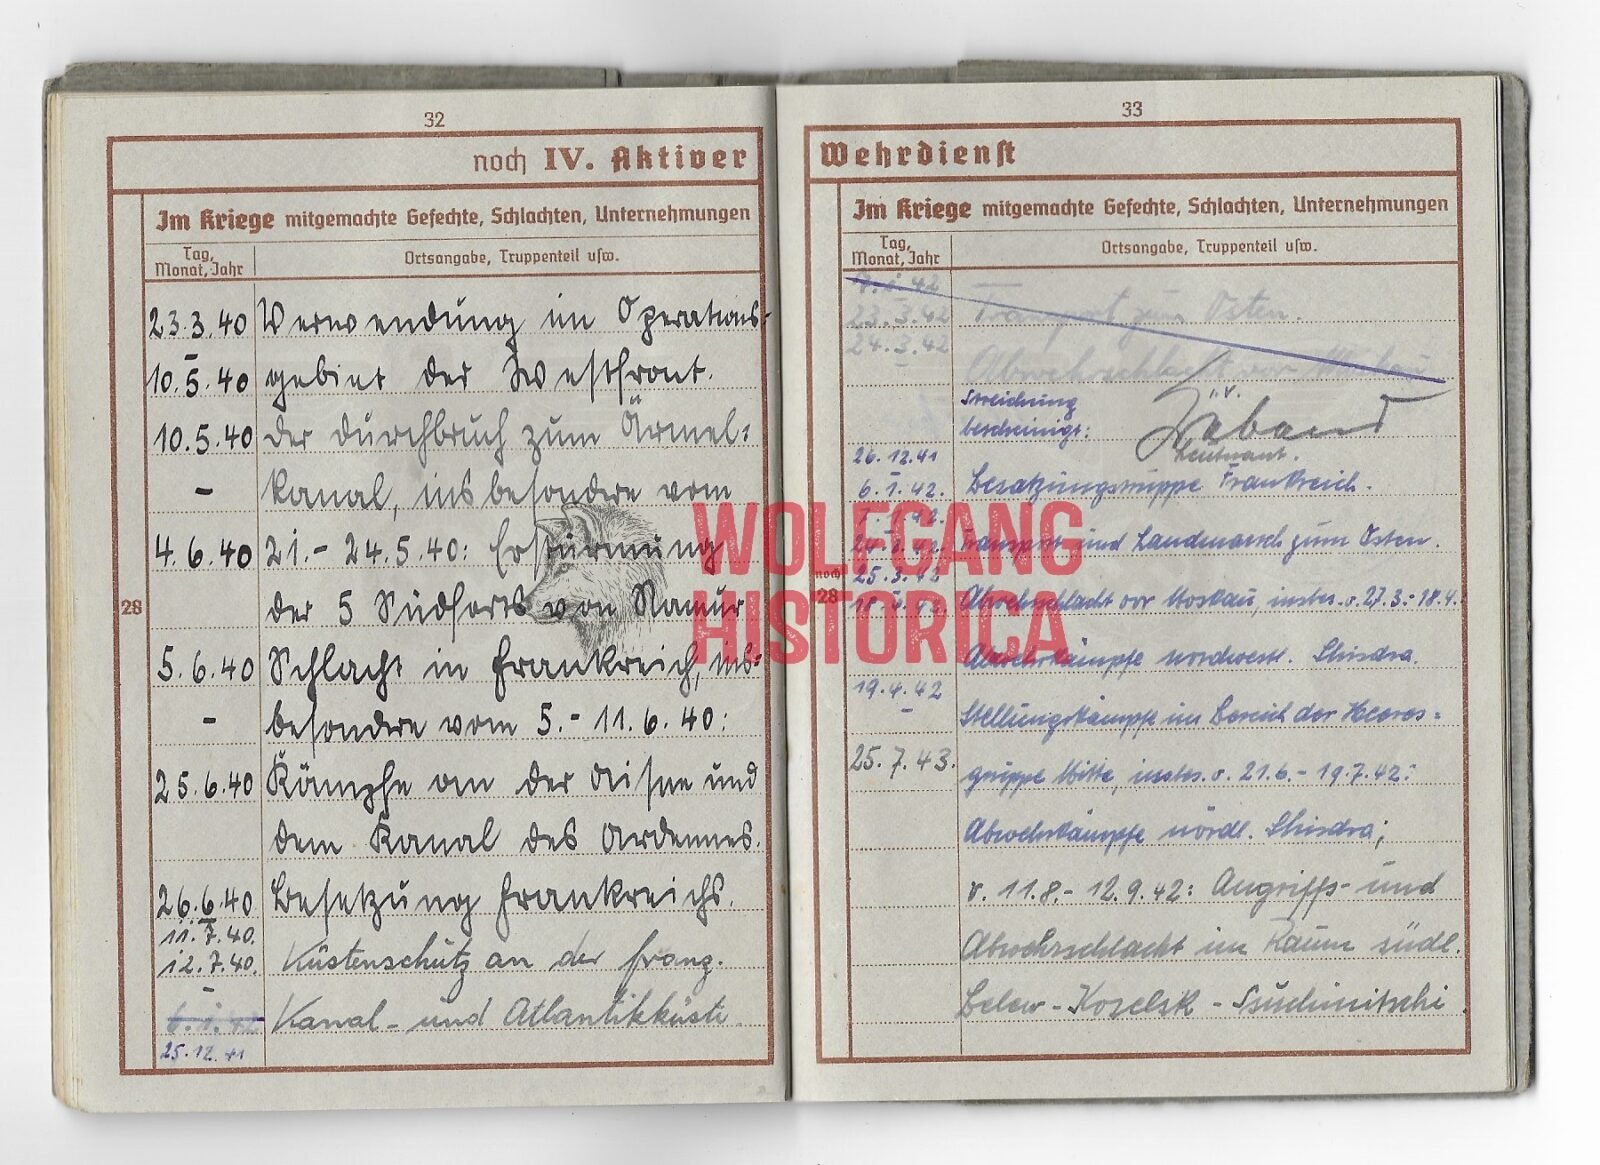 32
noch IV. Aktiver
Im Kriege mitgemachte Gefechte, Schlachten, Unternehmungen
Tag, Monat, Jahr
Ortsangabe, Truppenteil usw.
23.3.40 Verwendung im Operations-
–
10.5.40 gebiet der Westfront.
10.5.40 Der Durchbruch zum Ärmel=
– kanal, insbesondere vom
4.6.40 21.- 24.5.40: Erstürmung
der 5 Südforts von Namur
28
5.6.40 Schlacht in Frankreich, ins=
– besondere vom 5.- 11.6.40:
25.6.40 Kämpfe an der Aisne und
dem Kanal des Ardennes.
26.6.40 Besetzung Frankreichs.
–
11.7.40.
12.7.40. Küstenschutz an der franz.
–
6.1.42 Kanal- und Atlantikküste.
25.12.41
33
Wehrdienst
Im Kriege mitgemachte Gefechte, Schlachten, Unternehmungen
Tag, Monat, Jahr
Ortsangabe, Truppenteil usw.
7.1.42 –
23.3.42 Transport zum Osten.
24.3.42
– Abwehrschlacht vor Moskau
Streichung
bescheinigt:
i.V.
Leutnant.
26.12.41
–
6.1.42. Besatzungstruppe Frankreich.
7.1.42.
24.3.42. Transport und Landmarsch zum Osten.
noch 28
25.3.42
18.4.42. Abwehrschlacht vor Moskau, insbes. v. 27.3.-18.4.
Abwehrkämpfe nordwestl. Shisdra.
19.4.42
– Stellungskämpfe im Bereich der Heeres=
25.7.43. gruppe Mitte, insbes. v. 21.6.- 19.7.42:
Abwehrkämpfe nördl. Shisdra;
v. 11.8.- 12.9.42: Angriffs- und
Abwehrschlacht im Raum südl.
Belew - Koselsk - Suchinitschi
WOLFGANG
HISTORICA